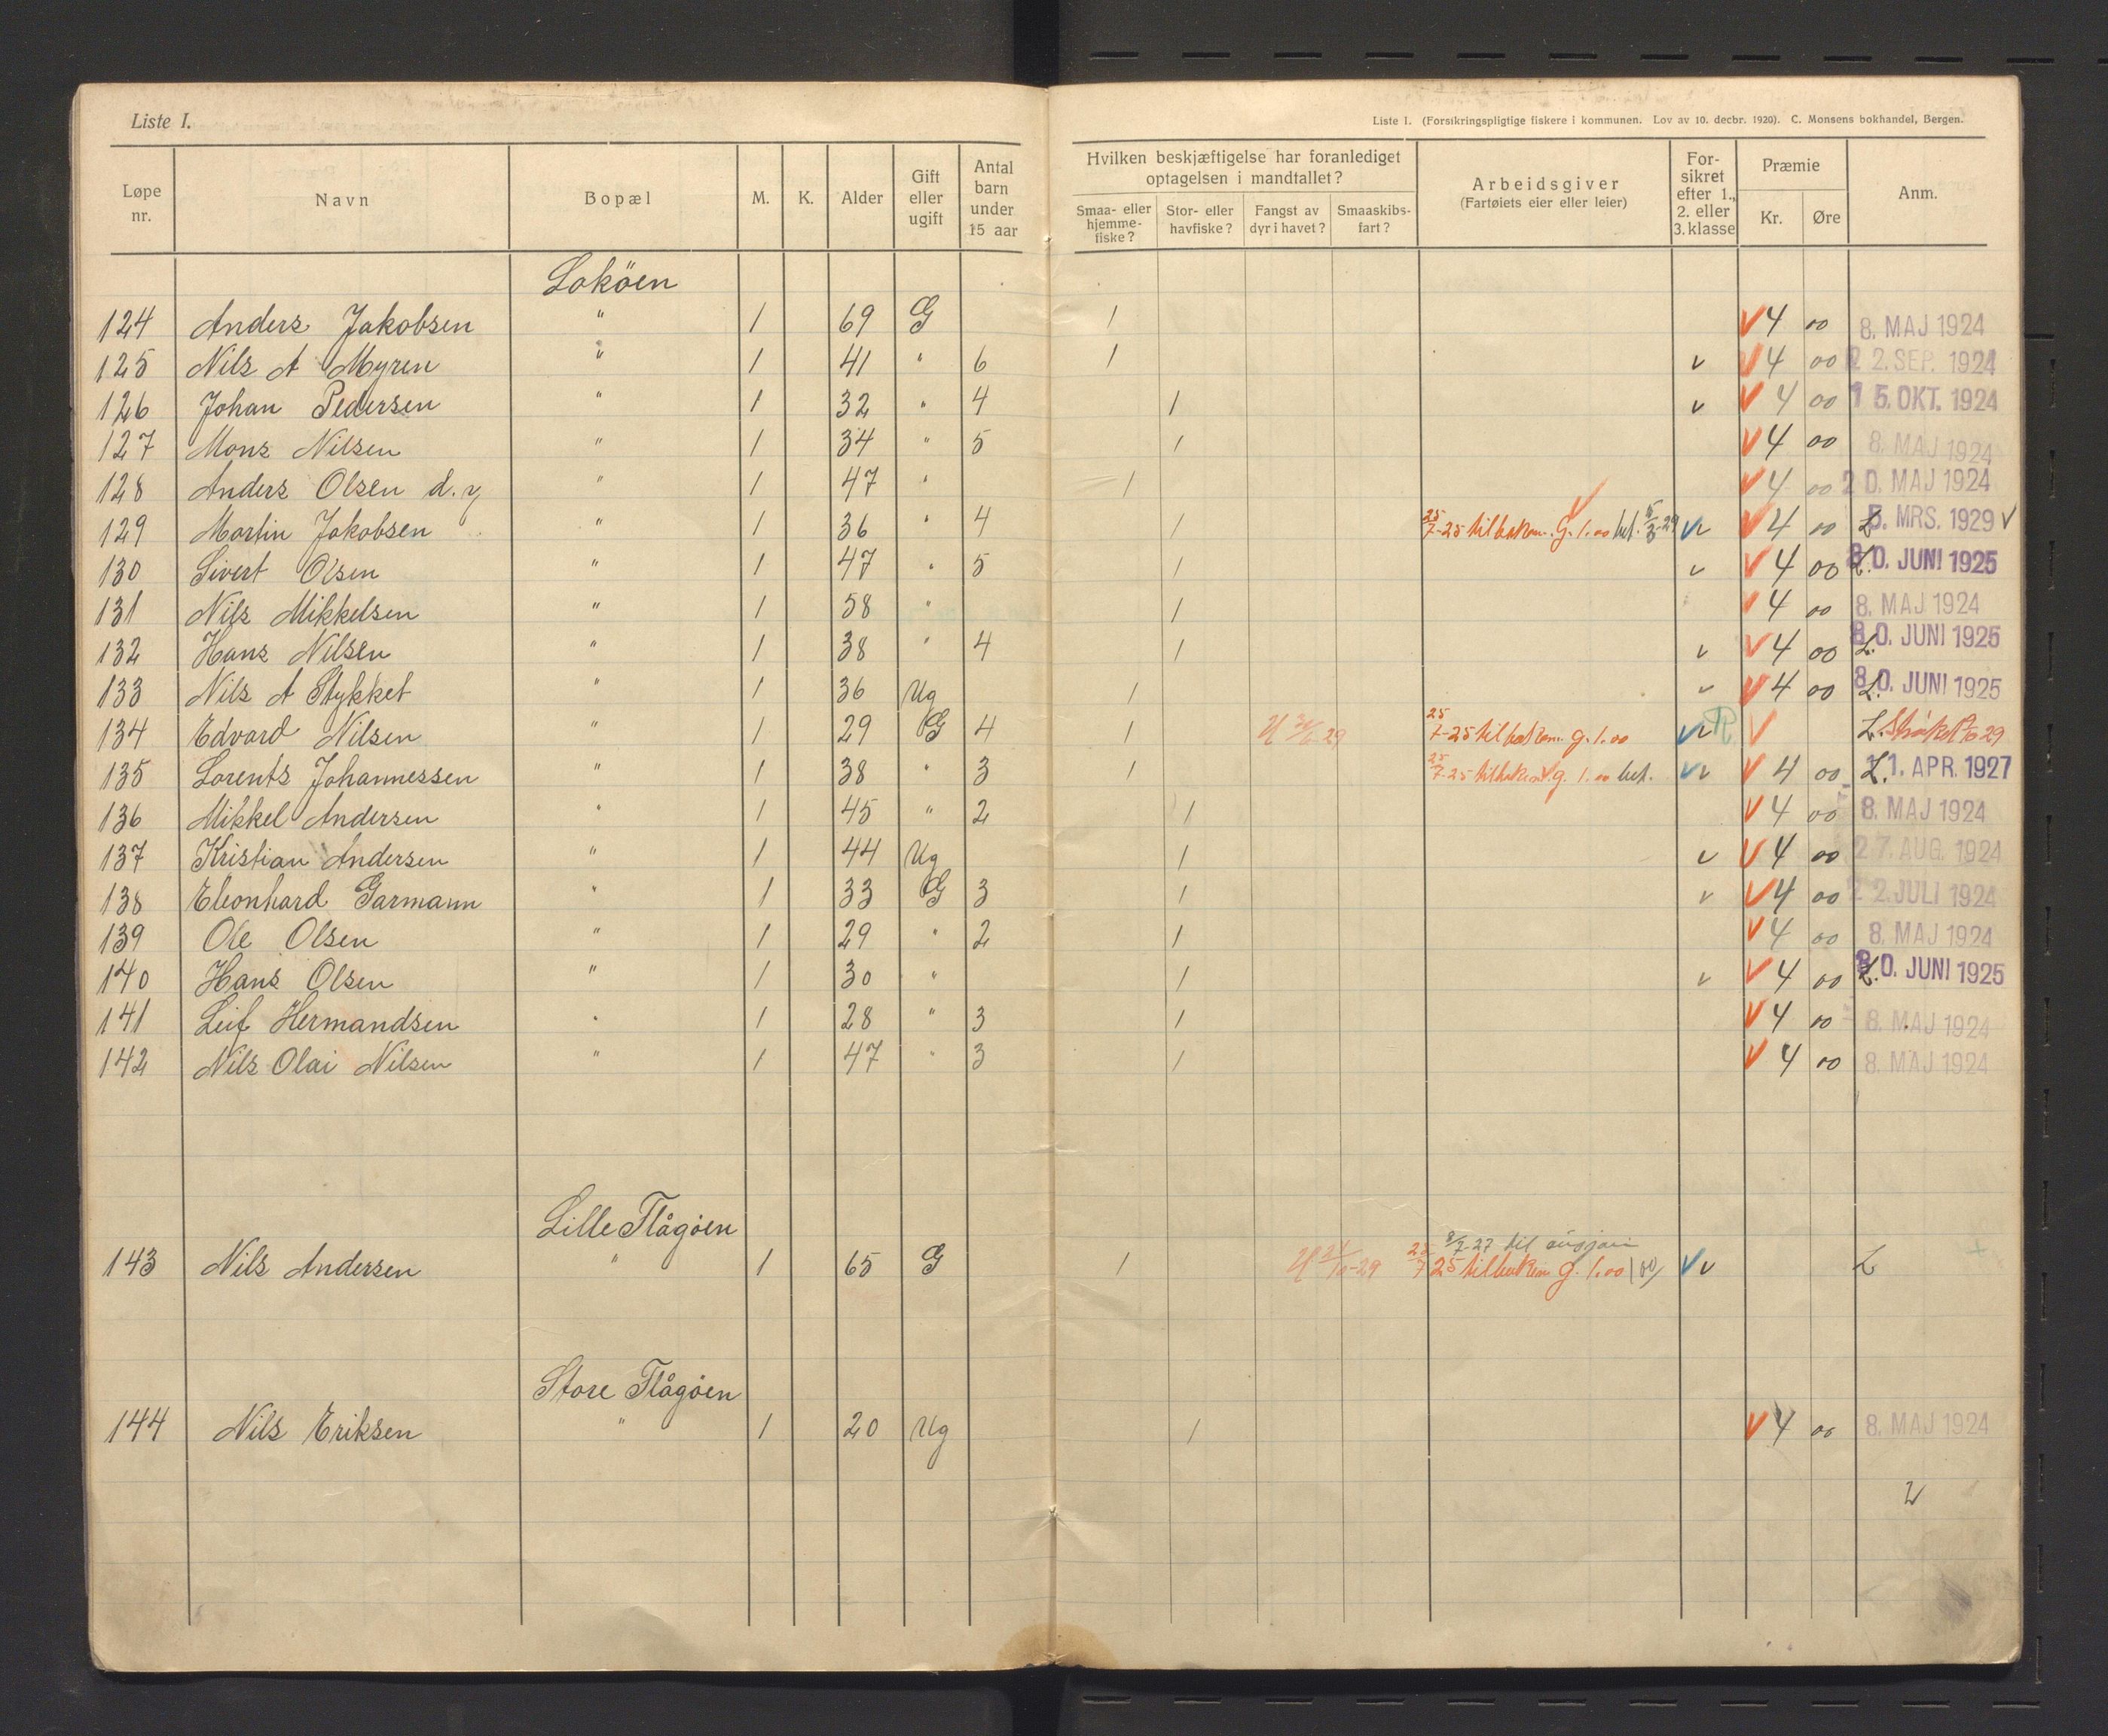 Liste I.
Liste I. (Forsikringspligtige fiskere i kommunen. Lov av 10. decbr. 1920). C. Monsens bokhandel, Bergen.
Løpe nr. Navn Bopæl M. K. Alder Gift eller ugift Antal barn under 15 aar Hvilken beskjæftigelse har foranlediget optagelsen i mandtallet? Smaa- eller hjemme-fiske? Stor- eller havfiske? Fangst av dyr i havet? Smaaskibs-fart? Arbeidsgiver (Fartøiets eier eller leier) For-sikret efter 1., 2. eller 3. klasse Præmie Kr. Øre Anm.
Loköen
124 Anders Jakobsen " 1 69 G 1 V 4 00 8. MAJ 1924
125 Nils A Myren " 1 41 " 6 1 v V 4 00 22. SEP. 1924
126 Johan Pedersen " 1 32 " 4 1 v V 4 00 15. OKT. 1924
127 Mons Nilsen " 1 34 " 5 1 V 4 00 8. MAJ 1924
128 Anders Olsen d.y " 1 47 " 1 V 4 00 20. MAJ 1924
129 Martin Jakobsen " 1 36 " 4 1 25/7-25 tilbakem. g. 1.00 bet. 5/3-29 v V 4 00 5. MRS. 1929 v
130 Sivert Olsen " 1 47 " 5 1 v V 4 00 L. 30. JUNI 1925
131 Nils Mikkelsen " 1 58 " 1 V 4 00 8. MAJ 1924
132 Hans Nilsen " 1 38 " 4 1 v V 4 00 L. 30. JUNI 1925
133 Nils A Stykket " 1 36 Ug 1 v V 4 00 L. 30. JUNI 1925
134 Edvard Nilsen " 1 29 G 4 1 25/7-25 tilbakem. g. 1.00 v R V L.
135 Lorents Johannessen " 1 38 " 3 1 25/7-25 tilbakem. g. 1.00 bet. v V 4 00 L. 11. APR. 1927
136 Mikkel Andersen " 1 45 " 2 1 V 4 00 8. MAJ 1924
137 Kristian Andersen " 1 44 Ug 1 v V 4 00 27. AUG. 1924
138 Eleonhard Garmann " 1 33 G 3 1 v V 4 00 22. JULI 1924
139 Ole Olsen " 1 29 " 2 1 V 4 00 8. MAJ 1924
140 Hans Olsen " 1 30 " 1 v V 4 00 L. 30. JUNI 1925
141 Leif Hermandsen " 1 28 " 3 1 V 4 00 8. MAJ 1924
142 Nils Olai Nilsen " 1 47 " 3 1 V 4 00 8. MAJ 1924
Lille Flågöen
8/7-27 til
143 Nils Andersen " 1 65 G 1 25/7 25 tilbakem g. 1.00 v L
Store Flågöen
144 Nils Eriksen " 1 20 Ug 1 V 4 00 8. MAJ 1924